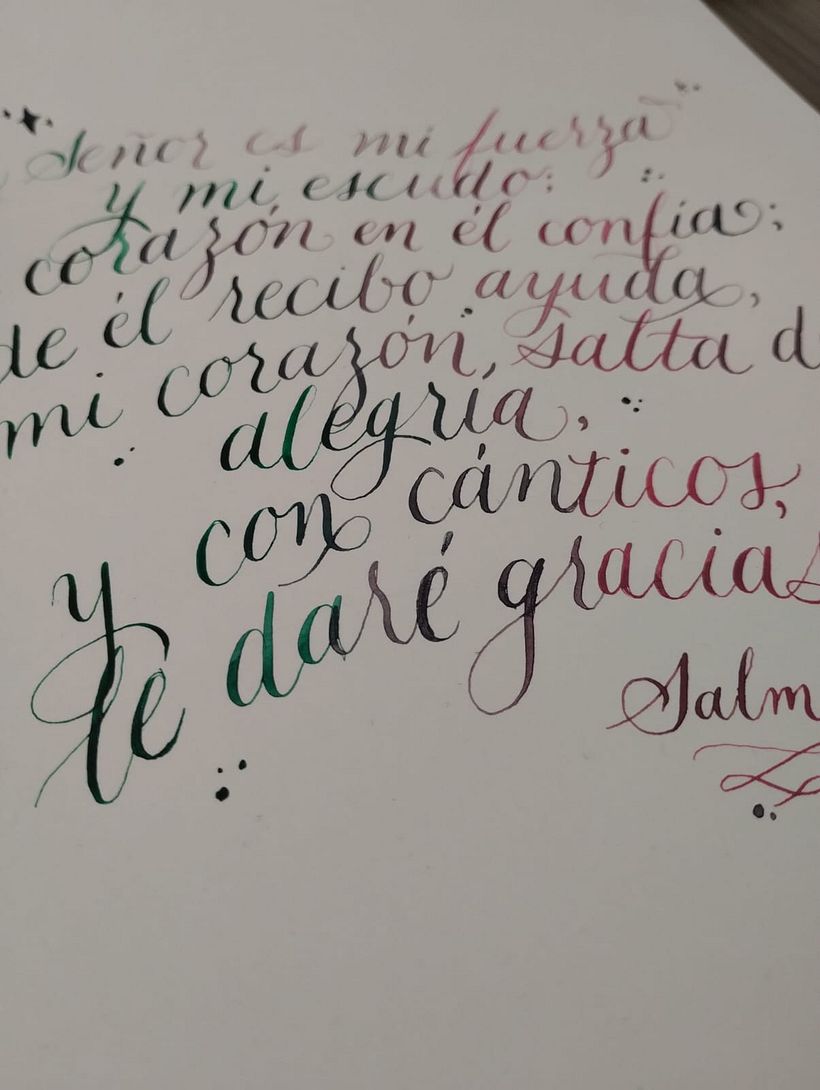 Señor es mi fuerza
y mi escudo:
corazón en él confía;
de él recibo ayuda,
mi corazón, salta d
alegría,
y con cánticos,
le daré gracias
Salm